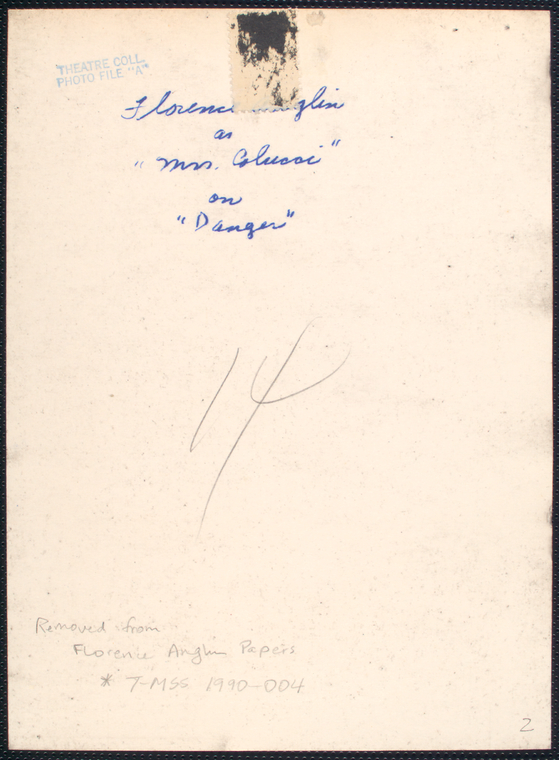 THEATRE COLL.
PHOTO FILE "A"
Florence Anglin
as
"Mrs. Colucci"
on
"Danger"
14
Removed from
Florence Anglin Papers
* T-MSS 1990-004
2